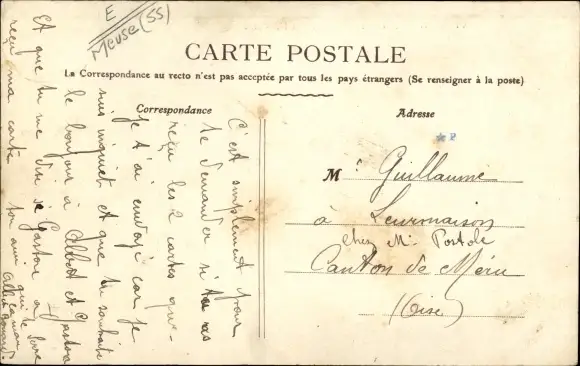 E
Meuse (55)
CARTE POSTALE
La Correspondance au recto n'est pas acceptée par tous les pays étrangers (Se renseigner à la poste)
Correspondance
C'est simplement pour
te demander si tu as
reçu les 2 cartes que
je t'ai envoyé car je
suis inquiet et que tu souhaite
le bonjour à Albert et Gaston
Et que tu me dise si Gaston a
reçu ma carte
ton ami qui te serre
la main
Albert
Adresse
M. Guillaume
à
chez M. Portole
Canton de Méru
(Oise)